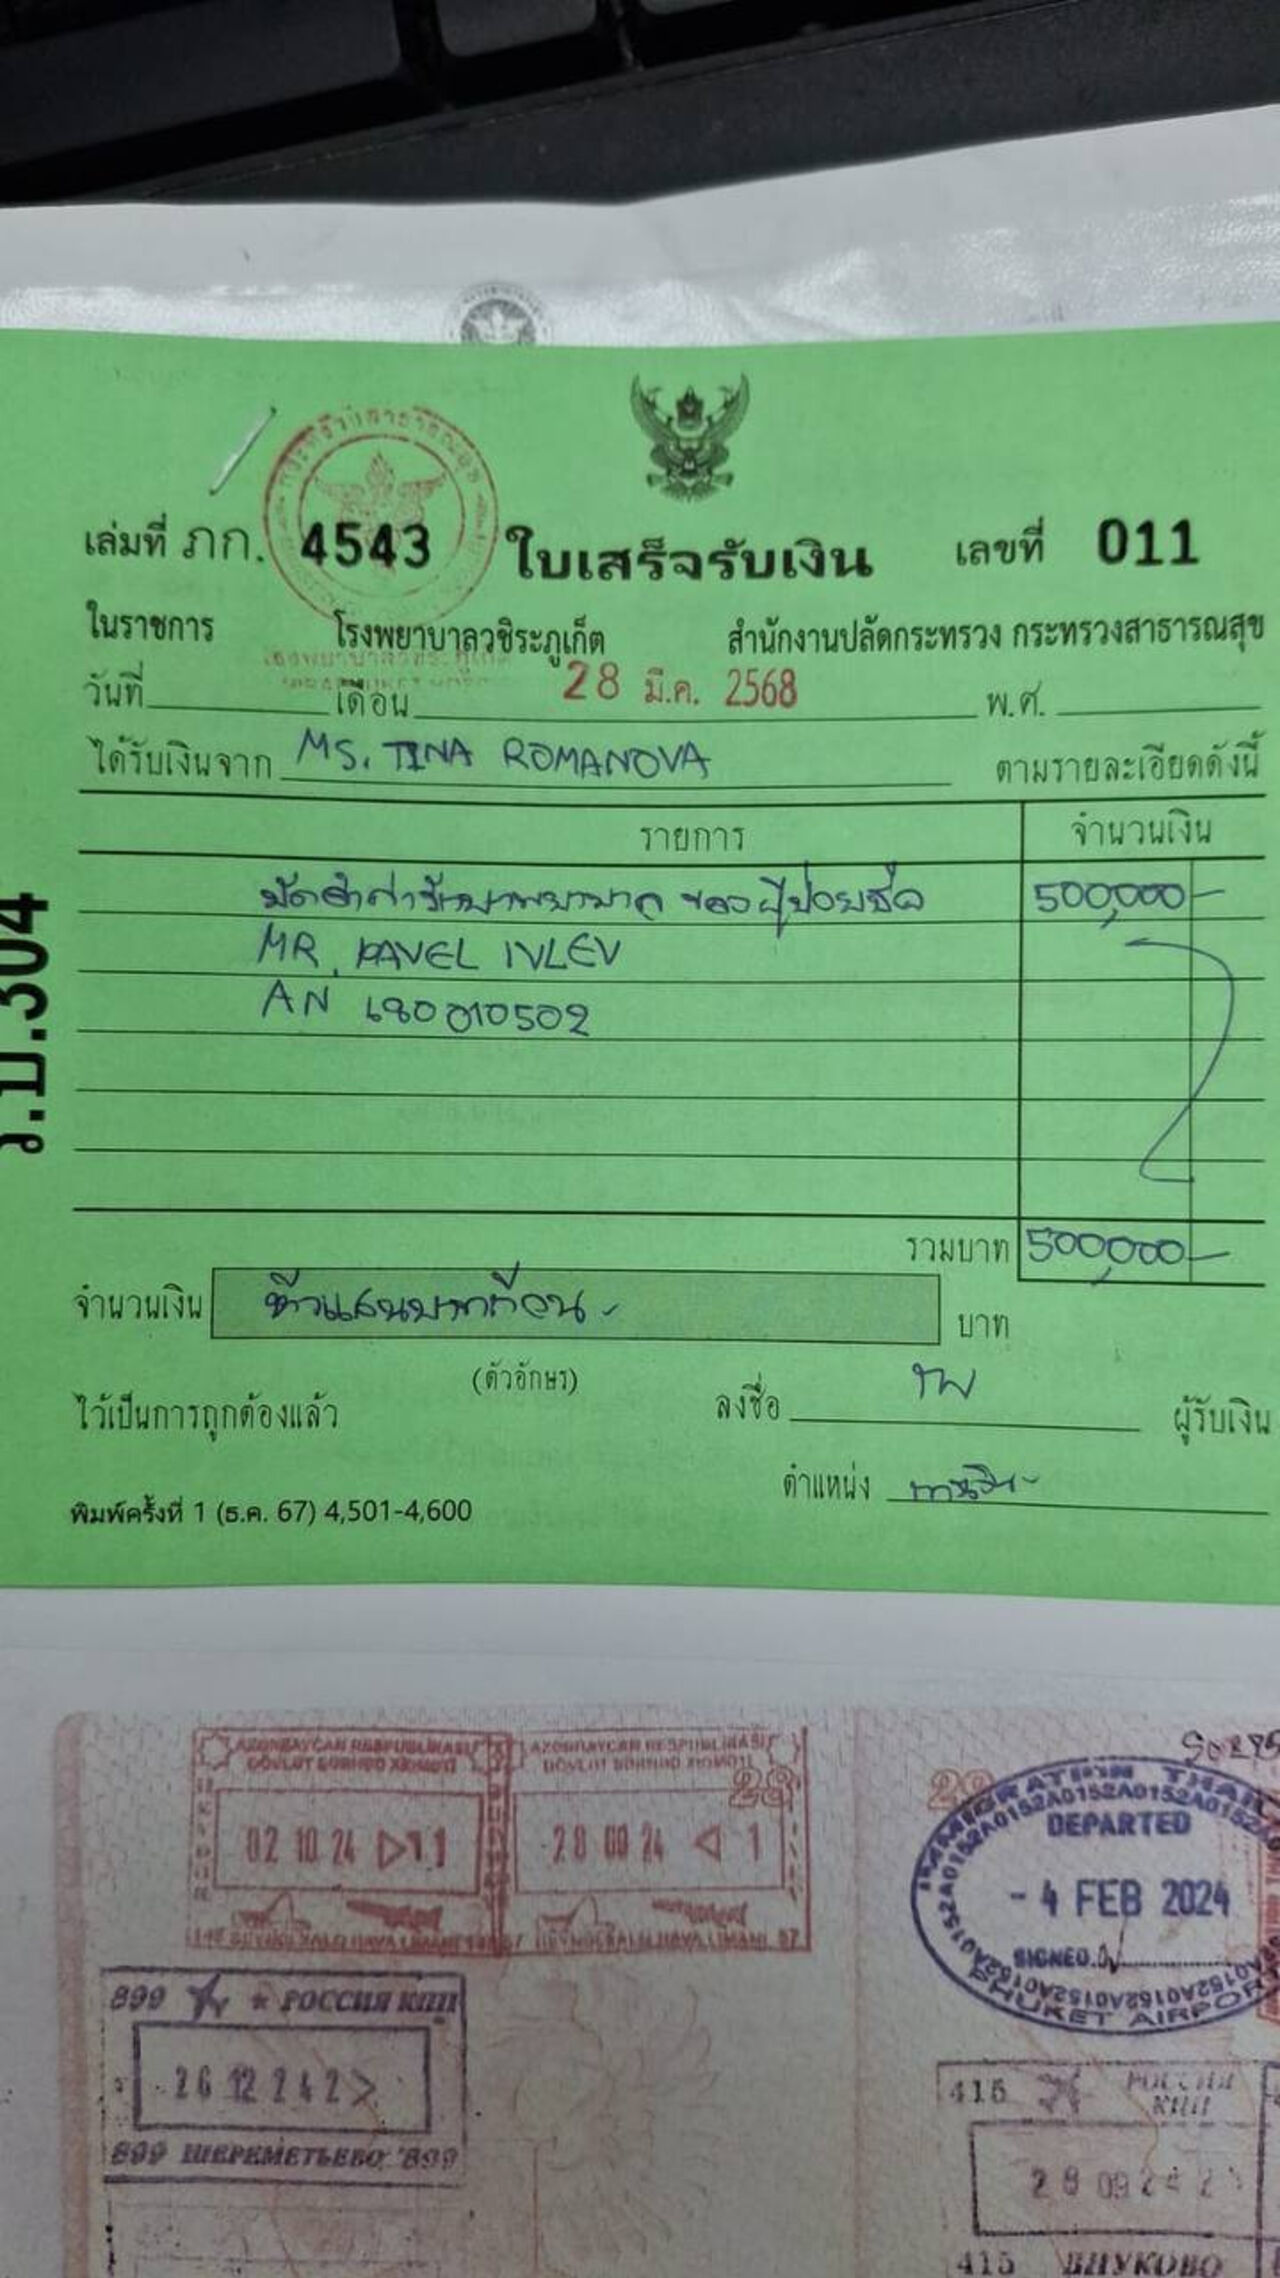 กระทรวงสาธารณสุข
เล่มที่ ภก. 4543 ใบเสร็จรับเงิน เลขที่ 011
ในราชการ โรงพยาบาลวชิระภูเก็ต สำนักงานปลัดกระทรวง กระทรวงสาธารณสุข
วันที่ เดือน 28 มี.ค. 2568 พ.ศ.
ได้รับเงินจาก MS. TINA ROMANOVA ตามรายละเอียดดังนี้
รายการ จำนวนเงิน
มัดจำค่ารักษาพยาบาล ของผู้ป่วยชื่อ 500,000-
MR. PAVEL IVLEV
AN 680010502
รวมบาท 500,000-
จำนวนเงิน ห้าแสนบาทถ้วน- บาท
(ตัวอักษร)
ไว้เป็นการถูกต้องแล้ว ลงชื่อ ผู้รับเงิน
ตำแหน่ง
พิมพ์ครั้งที่ 1 (ธ.ค. 67) 4,501-4,600
ร.บ.304
AZƏRBAYCAN RESPUBLİKASI AZƏRBAYCAN RESPUBLİKASI
DÖVLƏT SƏRHƏD XİDMƏTİ DÖVLƏT SƏRHƏD XİDMƏTİ
28 29
02 10 24 11 28 09 24 1
IMMIGRATION THAILAND
DEPARTED
- 4 FEB 2024
SIGNED
PHUKET AIRPORT
899 РОССИЯ КПП
26 12 24 2
899 ШЕРЕМЕТЬЕВО 899
415 РОССИЯ
КПП
28 09 24 2
415 ВНУКОВО